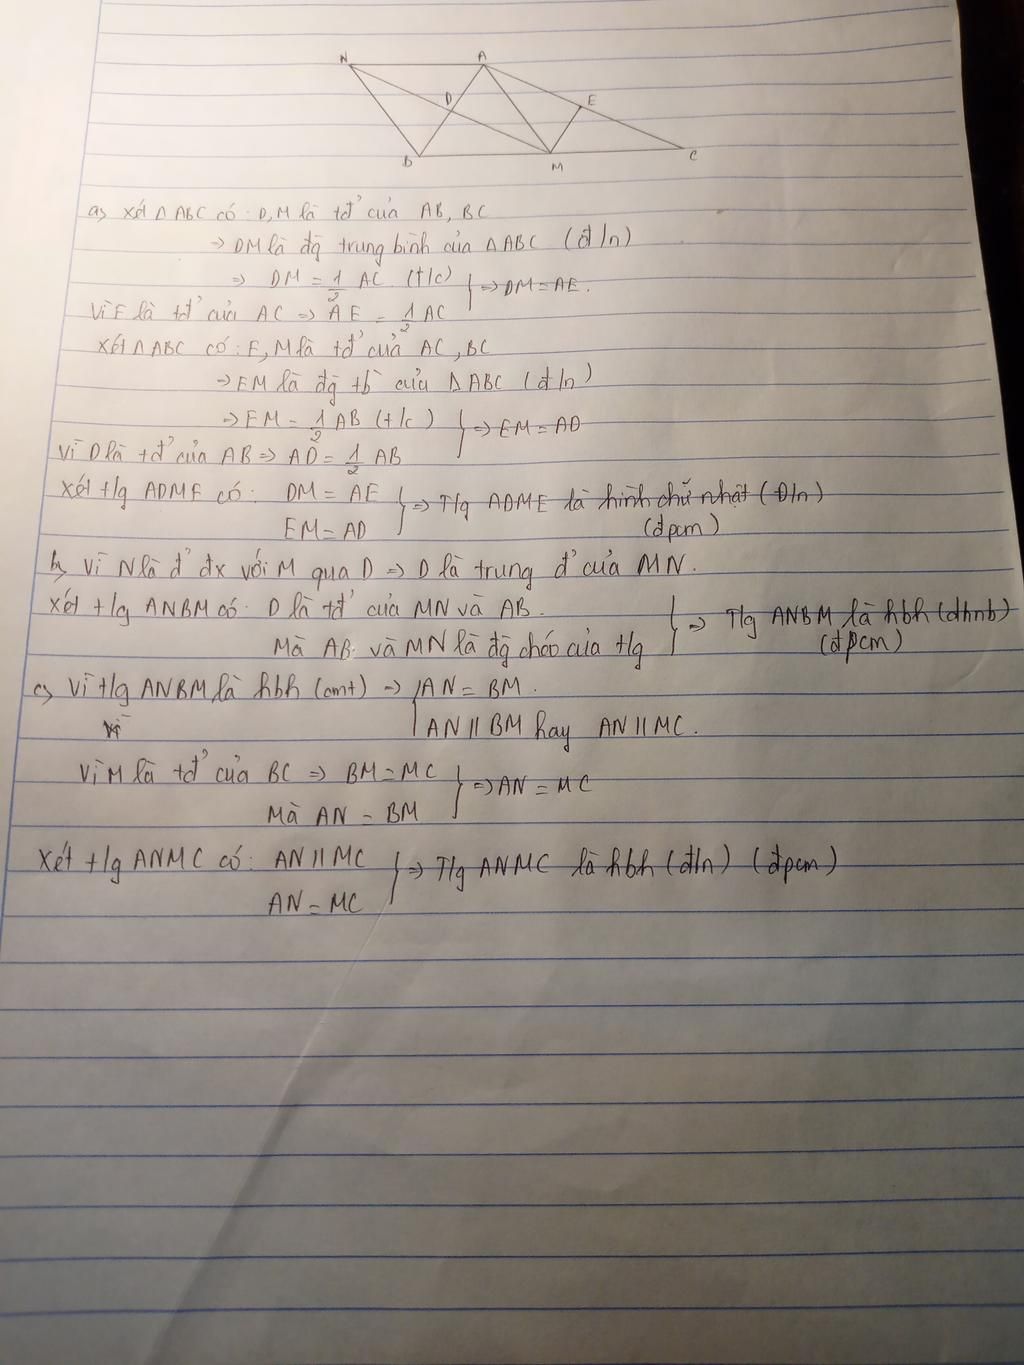 N A
D E
B M C
a, xét △ABC có: D, M là tđ' của AB, BC
⇒ DM là đg trung bình của △ABC (đ/n)
⇒ DM = 1/2 AC (t/c) } ⇒ DM = AE.
Vì E là tđ' của AC ⇒ AE = 1/2 AC
xét △ABC có: E, M là tđ' của AC, BC
⇒ EM là đg tb của △ABC (đ/n)
⇒ EM = 1/2 AB (t/c) } ⇒ EM = AD
vì D là tđ' của AB ⇒ AD = 1/2 AB
xét t/g ADME có: DM = AE } ⇒ T/g ADME là hình chữ nhật (Đ/n)
EM = AD (đpcm)
b, vì N là đ' đx với M qua D ⇒ D là trung đ' của MN.
xét t/g ANBM có: D là tđ' của MN và AB. } ⇒ T/g ANBM là hbh (dhnb)
Mà AB và MN là đg chéo của t/g (đpcm)
c, Vì t/g ANBM là hbh (cmt) ⇒ { AN = BM.
AN // BM hay AN // MC.
Vì M là tđ' của BC ⇒ BM = MC } ⇒ AN = MC
Mà AN = BM
xét t/g ANMC có: AN // MC } ⇒ T/g ANMC là hbh (đ/n) (đpcm)
AN = MC